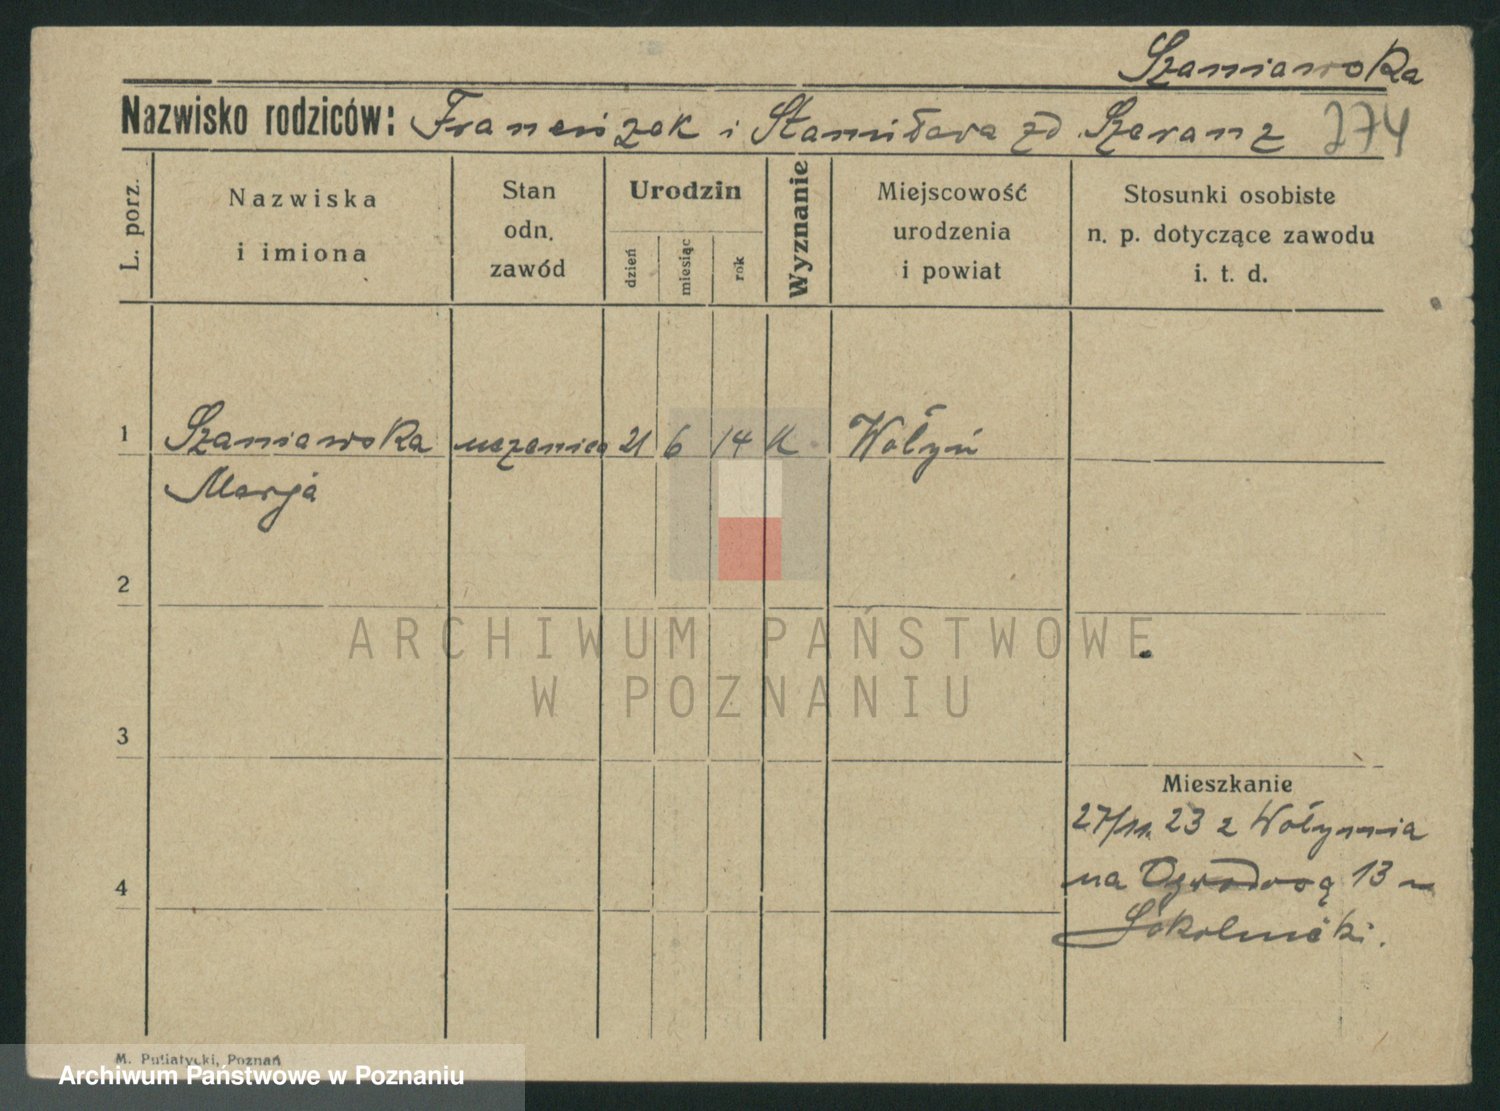 Szaniawska
Nazwisko rodziców: Franciszek i Stanisława zd. Szeranz 274
L. porz.
Nazwiska
i imiona
Stan
odn.
zawód
Urodzin
dzień
miesiąc
rok
Wyznanie
Miejscowość
urodzenia
i powiat
Stosunki osobiste
n. p. dotyczące zawodu
i. t. d.
1 Szaniawska uczenica 21 6 14 K Wołyń
Marja
2
ARCHIWUM PAŃSTWOWE
W POZNANIU
3
Mieszkanie
27/11. 23 z Wołynia
na Ogrodową 13
4
Sokolnicki.
M. Putiatycki, Poznań
Archiwum Państwowe w Poznaniu